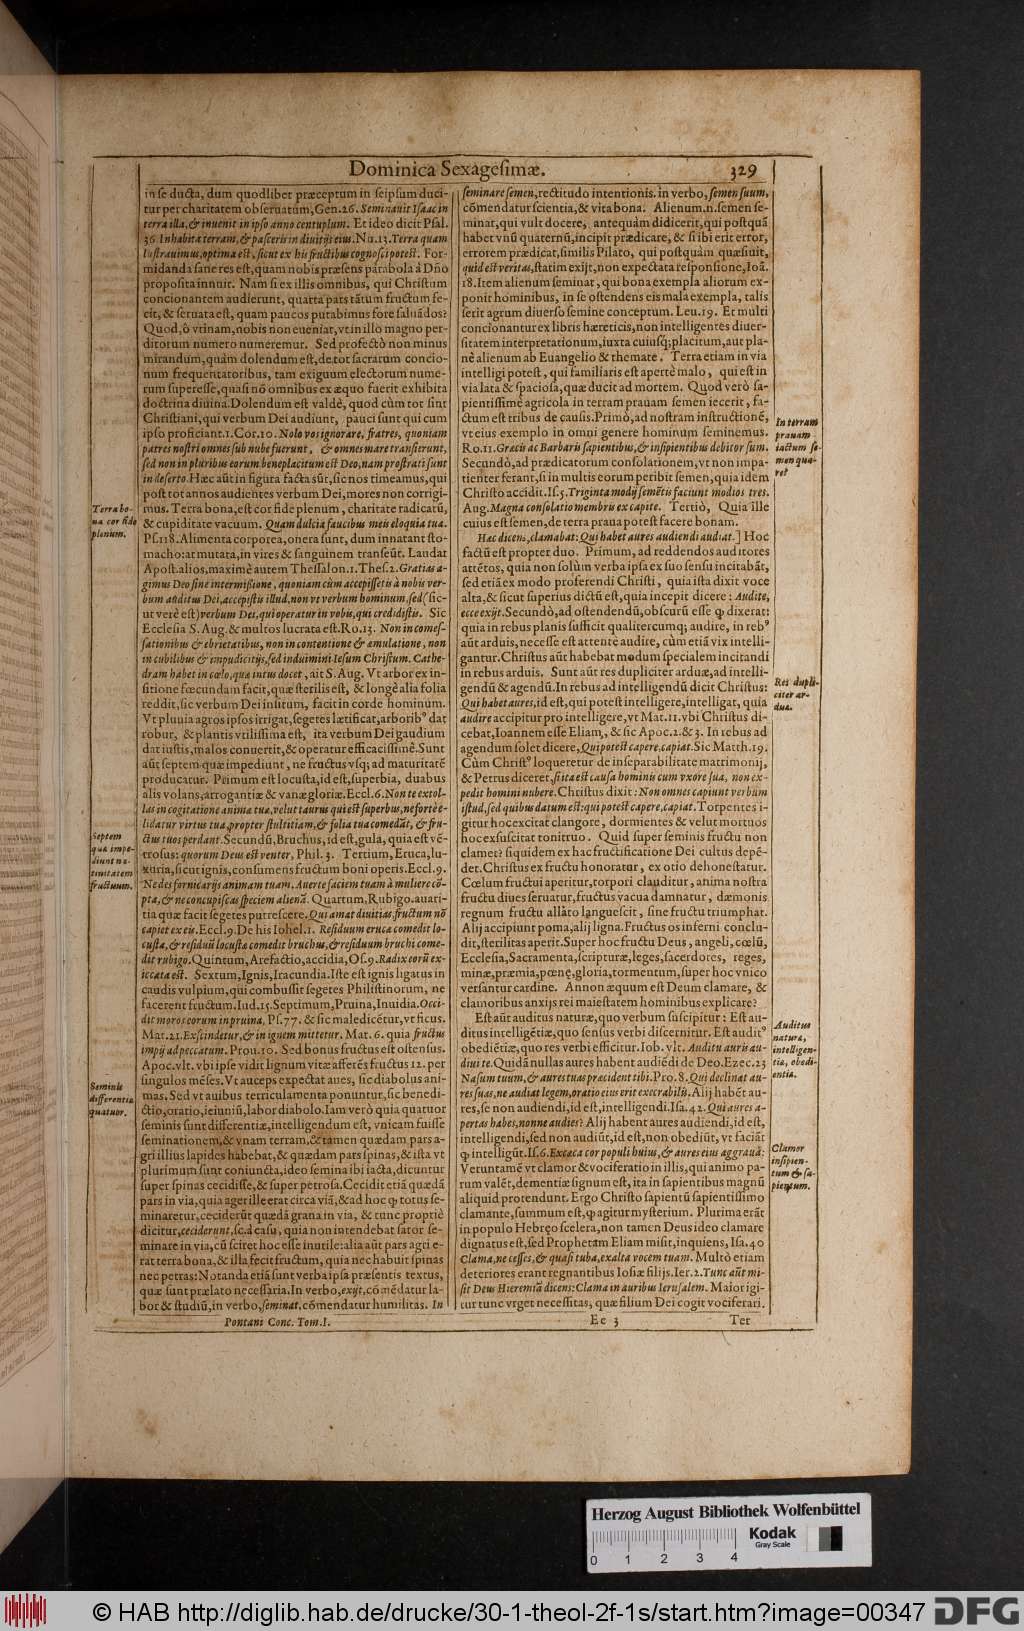 Dominica Sexagesimæ. 329
in se ducta, dum quodlibet præceptum in seipsum duci-
tur per charitatem obseruatum, Gen. 26. Seminauit Isaac in
terra illa, & inuenit in ipso anno centuplum. Et ideo dicit Psal.
36 Inhabita terram, & pasceris in diuitijs eius. Nu. 13. Terra quam
lustrauimus, optima est, sicut ex his fructibus cognosci potest. For-
midanda sane res est, quam nobis præsens parabola à Dño
proposita innuit. Nam si ex illis omnibus, qui Christum
concionantem audierunt, quarta pars tãtum fructum fe-
cit, & seruata est, quam paucos putabimus fore saluãdos?
Quod, ô vtinam, nobis non eueniat, vt in illo magno per-
ditorum numero numeremur. Sed profectò non minus
mirandum, quàm dolendum est, de tot sacrarum concio-
num frequentatoribus, tam exiguum electorum nume-
rum superesse, quasi nõ omnibus ex æquo fuerit exhibita
doctrina diuina. Dolendum est valdè, quod cùm tot sint
Christiani, qui verbum Dei audiunt, pauci sunt qui cum
ipso proficiant. 1. Cor. 10. Nolo vos ignorare, fratres, quoniam
patres nostri omnes sub nube fuerunt, & omnes mare transierunt,
sed non in pluribus eorum beneplacitum est Deo, nam prostrati sunt
in deserto. Hæc aũt in figura facta sũt, sic nos timeamus, qui
post tot annos audientes verbum Dei, mores non corrigi-
mus. Terra bona, est cor fide plenum, charitate radicatũ,
& cupiditate vacuum. Quam dulcia faucibus meis eloquia tua.
Ps. 118. Alimenta corporea, onera sunt, dum innatant sto-
macho: at mutata, in vires & sanguinem transeũt. Laudat
Apost. alios, maximè autem Thessalon. 1. Thes. 2. Gratias a-
gimus Deo sine intermißione, quoniam cùm accepißetis à nobis ver-
bum auditus Dei, accepistis illud, non vt verbum hominum, sed (sic-
ut verè est) verbum Dei, qui operatur in vobis, qui credidistis. Sic
Ecclesia S. Aug. & multos lucrata est. Ro. 13. Non in comes-
sationibus & ebrietatibus, non in contentione & æmulatione, non
in cubilibus & impudicitijs, sed induimini Iesum Christum. Cathe-
dram habet in cœlo, qui intus docet, ait S. Aug. Vt arbor ex in-
sitione fœcundam facit, quæ sterilis est, & longè alia folia
reddit, sic verbum Dei insitum, facit in corde hominum.
Vt pluuia agros ipsos irrigat, segetes lætificat, arboribꝰ dat
robur, & plantis vtilissima est, ita verbum Dei gaudium
dat iustis, malos conuertit, & operatur efficacissimè. Sunt
aũt septem quæ impediunt, ne fructus vsq; ad maturitatẽ
producatur. Primum est locusta, id est, superbia, duabus
alis volans, arrogantiæ & vanægloriæ. Eccl. 6. Non te extol-
las in cogitatione anima tua, velut taurus qui est superbus, ne fortè e-
lidatur virtus tua, propter stultitiam, & folia tua comedãt, & fru-
ctus tuos perdant. Secundũ, Bruchus, id est, gula, quia est vẽ-
trosus: quorum Deus est venter, Phil. 3. Tertium, Eruca, lu-
xuria, sicut ignis, consumens fructum boni operis. Eccl. 9.
Ne des fornicarijs animam tuam. Auerte faciem tuam à muliere cõ-
pta, & ne concupiscas speciem alienã. Quartum, Rubigo. auari-
tia quæ facit segetes putrescere. Qui amat diuitias, fructum nõ
capiet ex eis. Eccl. 9. De his Iohel. 1. Residuum erucæ comedit lo-
custa, & residuũ locustæ comedit bruchus, & residuum bruchi come-
dit rubigo. Quintum, Arefactio, accidia, Os. 9. Radix eorũ ex-
iccata est. Sextum, Ignis, Iracundia. Iste est ignis ligatus in
caudis vulpium, qui combussit segetes Philistinorum, ne
facerent fructum. Iud. 15. Septimum, Pruina, Inuidia. Occi-
dit moros eorum in pruina, Ps. 77. & sic maledicẽtur, vt ficus.
Mat. 21. Excindetur, & in ignem mittetur. Mat. 6. quia fructus
impij ad peccatum. Prou. 10. Sed bonus fructus est ostensus.
Apoc. vlt. vbi ipse vidit lignum vitæ afferẽs fructus 12. per
singulos mẽses. Vt auceps expectat aues, sic diabolus ani-
mas. Sed vt auibus terriculamenta ponuntur, sic benedi-
ctio, oratio, ieiuniũ, labor diabolo. Iam verò quia quatuor
seminis sunt differentiæ, intelligendum est, vnicam fuisse
seminationem, & vnam terram, & tamen quædam pars a-
gri illius lapides habebat, & quædam pars spinas, & ista vt
plurimum sunt coniuncta, ideo semina ibi iacta, dicuntur
super spinas cecidisse, & super petrosa. Cecidit etiã quædã
pars in via, quia ager ille erat circa viã, & ad hoc ꝙ totus se-
minaretur, ceciderũt quædã grana in via, & tunc propriè
dicitur, ceciderunt, sc. à casu, quia non intendebat sator se-
minare in via, cũ sciret hoc esse inutile: alia aũt pars agri e-
rat terra bona, & illa fecit fructum, quia nec habuit spinas
nec petras: Notanda etiã sunt verba ipsa præsentis textus,
quæ sunt prælato necessaria. In verbo, exijt, cõmẽdatur la-
bor & studiũ, in verbo, seminat, cõmendatur humilitas. In
Terra bo-
na cor fide
plenum.
Septem
quæ impe-
diunt ma-
turitatem
fructuum.
Seminis
differentiæ
quatuor.
seminare semen, rectitudo intentionis. in verbo, semen suum,
cõmendatur scientia, & vita bona. Alienum. n. semen se-
minat, qui vult docere, antequàm didicerit, qui postquã
habet vnũ quaternũ, incipit prædicare, & si ibi erit error,
errorem prædicat, similis Pilato, qui postquàm quæsiuit,
quid est veritas, statim exijt, non expectata responsione, Ioã.
18. Item alienum seminat, qui bona exempla aliorum ex-
ponit hominibus, in se ostendens eis mala exempla, talis
serit agrum diuerso semine conceptum. Leu. 19. Et multi
concionantur ex libris hæreticis, non intelligentes diuer-
sitatem interpretationum, iuxta cuiusq; placitum, aut pla-
nè alienum ab Euangelio & themate. Terra etiam in via
intelligi potest, qui familiaris est apertè malo, qui est in
via lata & spaciosa, quæ ducit ad mortem. Quod verò sa-
pientissimè agricola in terram prauam semen iecerit, fa-
ctum est tribus de causis. Primò, ad nostram instructionẽ,
vt eius exemplo in omni genere hominum seminemus.
Ro. 11. Græcis ac Barbaris sapientibus, & insipientibus debitor sum.
Secundò, ad prædicatorum consolationem, vt non impa-
tienter ferant, si in multis eorum peribit semen, quia idem
Christo accidit. Is. 5. Triginta modij semẽtis faciunt modios tres.
Aug. Magna consolatio membris ex capite. Tertiò, Quia ille
cuius est semen, de terra praua potest facere bonam.
Hæc dicens, clamabat: Qui habet aures audiendi audiat.] Hoc
factũ est propter duo. Primum, ad reddendos auditores
attẽtos, quia non solùm verba ipsa ex suo sensu incitabãt,
sed etiã ex modo proferendi Christi, quia ista dixit voce
alta, & sicut superius dictũ est, quia incepit dicere: Audite,
ecce exijt. Secundò, ad ostendendũ, obscurũ esse ꝙ dixerat:
quia in rebus planis sufficit qualitercumq; audire, in rebꝰ
aũt arduis, necesse est attentè audire, cùm etiã vix intelli-
gantur. Christus aũt habebat modum specialem incitandi
in rebus arduis. Sunt aũt res dupliciter arduæ, ad intelli-
gendũ & agendũ. In rebus ad intelligendũ dicit Christus:
Qui habet aures, id est, qui potest intelligere, intelligat, quia
audire accipitur pro intelligere, vt Mat. 11. vbi Christus di-
cebat, Ioannem esse Eliam, & sic Apoc. 2. & 3. In rebus ad
agendum solet dicere, Qui potest capere, capiat. Sic Matth. 19.
Cùm Christꝰ loqueretur de inseparabilitate matrimonij,
& Petrus diceret, si ita est causa hominis cum vxore sua, non ex-
pedit homini nubere. Christus dixit: Non omnes capiunt verbũm
istud, sed quibus datum est: qui potest capere, capiat. Torpentes i-
gitur hoc excitat clangore, dormientes & velut mortuos
hoc exsuscitat tonitruo. Quid super seminis fructu non
clamet? siquidem ex hac fructificatione Dei cultus depẽ-
det. Christus ex fructu honoratur, ex otio dehonestatur.
Cœlum fructui aperitur, torpori clauditur, anima nostra
fructu diues seruatur, fructus vacua damnatur, dæmonis
regnum fructu allato languescit, sine fructu triumphat.
Alij accipiunt poma, alij ligna. Fructus os inferni conclu-
dit, sterilitas aperit. Super hoc fructu Deus, angeli, cœlũ,
Ecclesia, Sacramenta, scripturæ, leges, sacerdotes, reges,
minæ, præmia, pœnę, gloria, tormentum, super hoc vnico
versantur cardine. Annon æquum est Deum clamare, &
clamoribus anxijs rei maiestatem hominibus explicare?
Est aũt auditus naturæ, quo verbum suscipitur: Est au-
ditus intelligẽtiæ, quo sensus verbi discernitur. Est auditꝰ
obediẽtiæ, quo res verbi efficitur. Iob. vlt. Auditu auris au-
diui te. Quidã nullas aures habent audiẽdi de Deo. Ezec. 23
Nasum tuum, & aures tuas præcident tibi. Pro. 8. Qui declinat au-
res suas, ne audiat legem, oratio eius erit execrabilis. Alij habẽt au-
res, sed non audiendi, id est, intelligendi. Isa. 42. Qui aures a-
pertas habes, nonne audies? Alij habent aures audiendi, id est,
intelligendi, sed non audiũt, id est, non obediũt, vt faciãt
ꝙ intelligũt. Is. 6. Excæca cor populi huius, & aures eius aggrauã:
Veruntamẽ vt clamor & vociferatio in illis, qui animo pa-
rum valẽt, dementiæ signum est, ita in sapientibus magnũ
aliquid protendunt. Ergo Christo sapientũ sapientissimo
clamante, summum est, ꝙ agitur mysterium. Plurima erãt
in populo Hebręo scelera, non tamen Deus ideo clamare
dignatus est, sed Prophetam Eliam misit, inquiens, Isa. 40
Clama, ne cesses, & quasi tuba, exalta vocem tuam. Multò etiam
deteriores erant regnantibus Iosiæ filijs. Ier. 2. Tunc aũt mi-
sit Deus Hieremiã dicens: Clama in auribus Ierusalem. Maior igi-
tur tunc vrget necessitas, quæ filium Dei cogit vociferari.
In terram
prauam
iactum se-
men qua-
re?
Res dupli-
citer ar-
duæ.
Auditus
naturæ,
intelligen-
tiæ, obedi-
entiæ.
Clamor
insipien-
tum & sa-
pientum.
Pontani Conc. Tom. I. Ee 3 Ter
Herzog August Bibliothek Wolfenbüttel
Kodak
Gray Scale
0 1 2 3 4
© HAB http://diglib.hab.de/drucke/30-1-theol-2f-1s/start.htm?image=00347 DFG